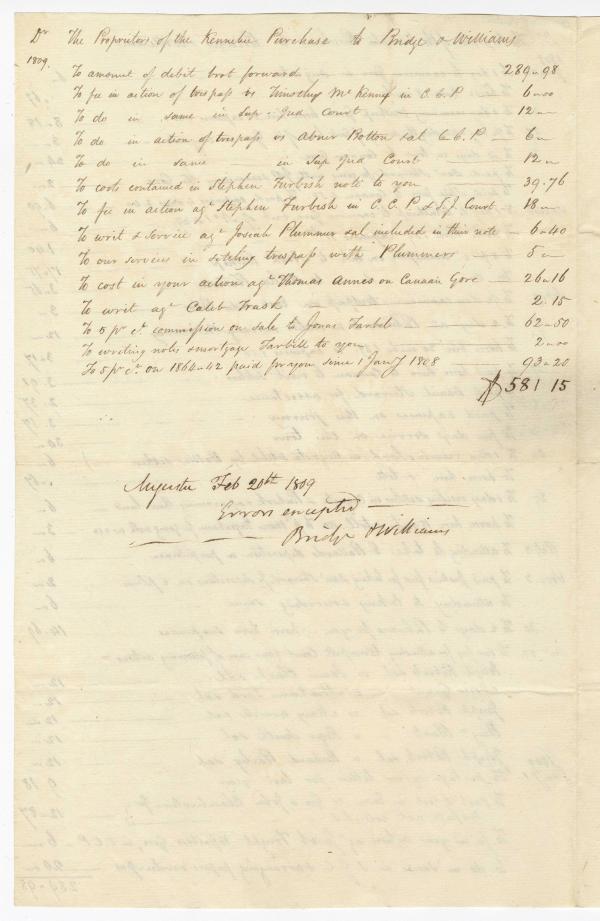 Dr The Proprietors of the Kennebec Purchase to Bridge & Williams
1809.
To amount of debit brot forward 289-98
To fee in action of trespass vs Timothy McKenny in C. C. P 6-00
To do in same in Sup: Jud Court 12-
To do in action of trespass vs Abner Botton & al C. C. P 6-
To do in same in Sup Jud Court 12-
To costs contained in Stephen Furbish note to you 39.76
To fee in action agt Stephen Furbish in C. C. P & S. J. Court 18-
To writ & service agt Josiah Plummer & al included in their note 6-40
To our services in settling trespass with Plummers 5-
To cost in your action agt Thomas Annes on Canaan Gore 26-16
To writ agt Caleb Trask 2.15
To 5 pr ct. commission on sale to Jonas Farbel 62-50
To writing notes & mortgage Farbell to you 2-00
To 5 pr ct. on 1864-42 paid for you since 1 Jany 1808 93-20
$581 15
Augusta Feb 20th 1809
Errors excepted
Bridge & Williams